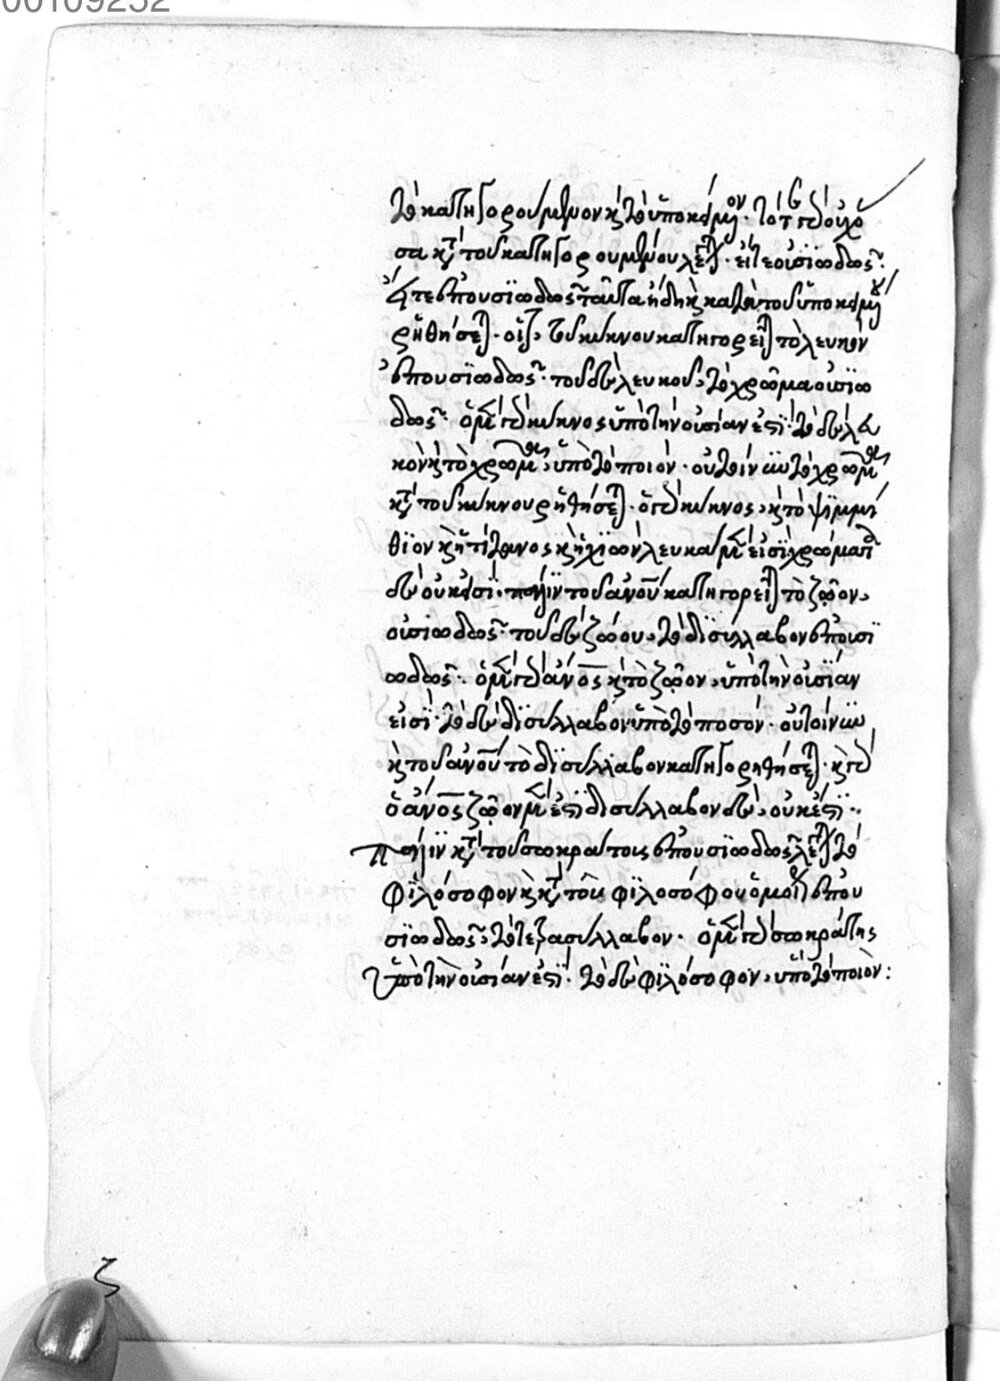 00109252
τὸ κατηγορούμενον καὶ τὸ ὑποκείμενον· τότε δὲ ὁπόσα
κατὰ τοῦ κατηγορουμένου λέγεται· εἴτε οὐσιωδῶς·
εἴτε ἐπουσιωδῶς ταῦτα ἤδη καὶ κατὰ τοῦ ὑποκειμένου
ῥηθήσεται· οἷον, τοῦ κύκνου κατηγορεῖται τὸ λευκὸν
ἐπουσιωδῶς· τοῦ δὲ λευκοῦ, τὸ χρῶμα οὐσιω
δῶς· ὁ μὲν γὰρ κύκνος ὑπὸ τὴν οὐσίαν ἐστί· τὸ δὲ λευ
κὸν καὶ τὸ χρῶμα, ὑπὸ τὸ ποιόν· οὐ τοίνυν τὸ χρῶμα
κατὰ τοῦ κύκνου ῥηθήσεται· ὁ γὰρ κύκνος, καὶ τὸ ψιμμύ
θιον καὶ ἡ τίτανος καὶ ἡ χιὼν λευκὰ μέν εἰσι χρώματα
δὲ οὐκ εἰσί· πάλιν τοῦ ἀνθρώπου κατηγορεῖται τὸ ζῷον,
οὐσιωδῶς· τοῦ δὲ ζῴου, τὸ δισύλλαβον ἐπουσι
ωδῶς· ὁ μὲν γὰρ ἄνθρωπος καὶ τὸ ζῷον, ὑπὸ τὴν οὐσίαν
εἰσί· τὸ δὲ δισύλλαβον ὑπὸ τὸ ποσόν· οὐ τοίνυν
καὶ τοῦ ἀνθρώπου τὸ δισύλλαβον κατηγορηθήσεται· καὶ γὰρ
ὁ ἄνθρωπος ζῷον μέν ἐστι δισύλλαβον δὲ, οὐκ ἔστι·
πάλιν κατὰ τοῦ σωκράτους ἐπουσιωδῶς λέγεται τὸ
φιλόσοφον καὶ κατὰ τοῦ φιλοσόφου ὁμοίως ἐπου
σιωδῶς, τὸ τετρασύλλαβον· ὁ μὲν γὰρ σωκράτης
ὑπὸ τὴν οὐσίαν ἐστί· τὸ δὲ φιλόσοφον, ὑπὸ τὸ ποιὸν:
ζ